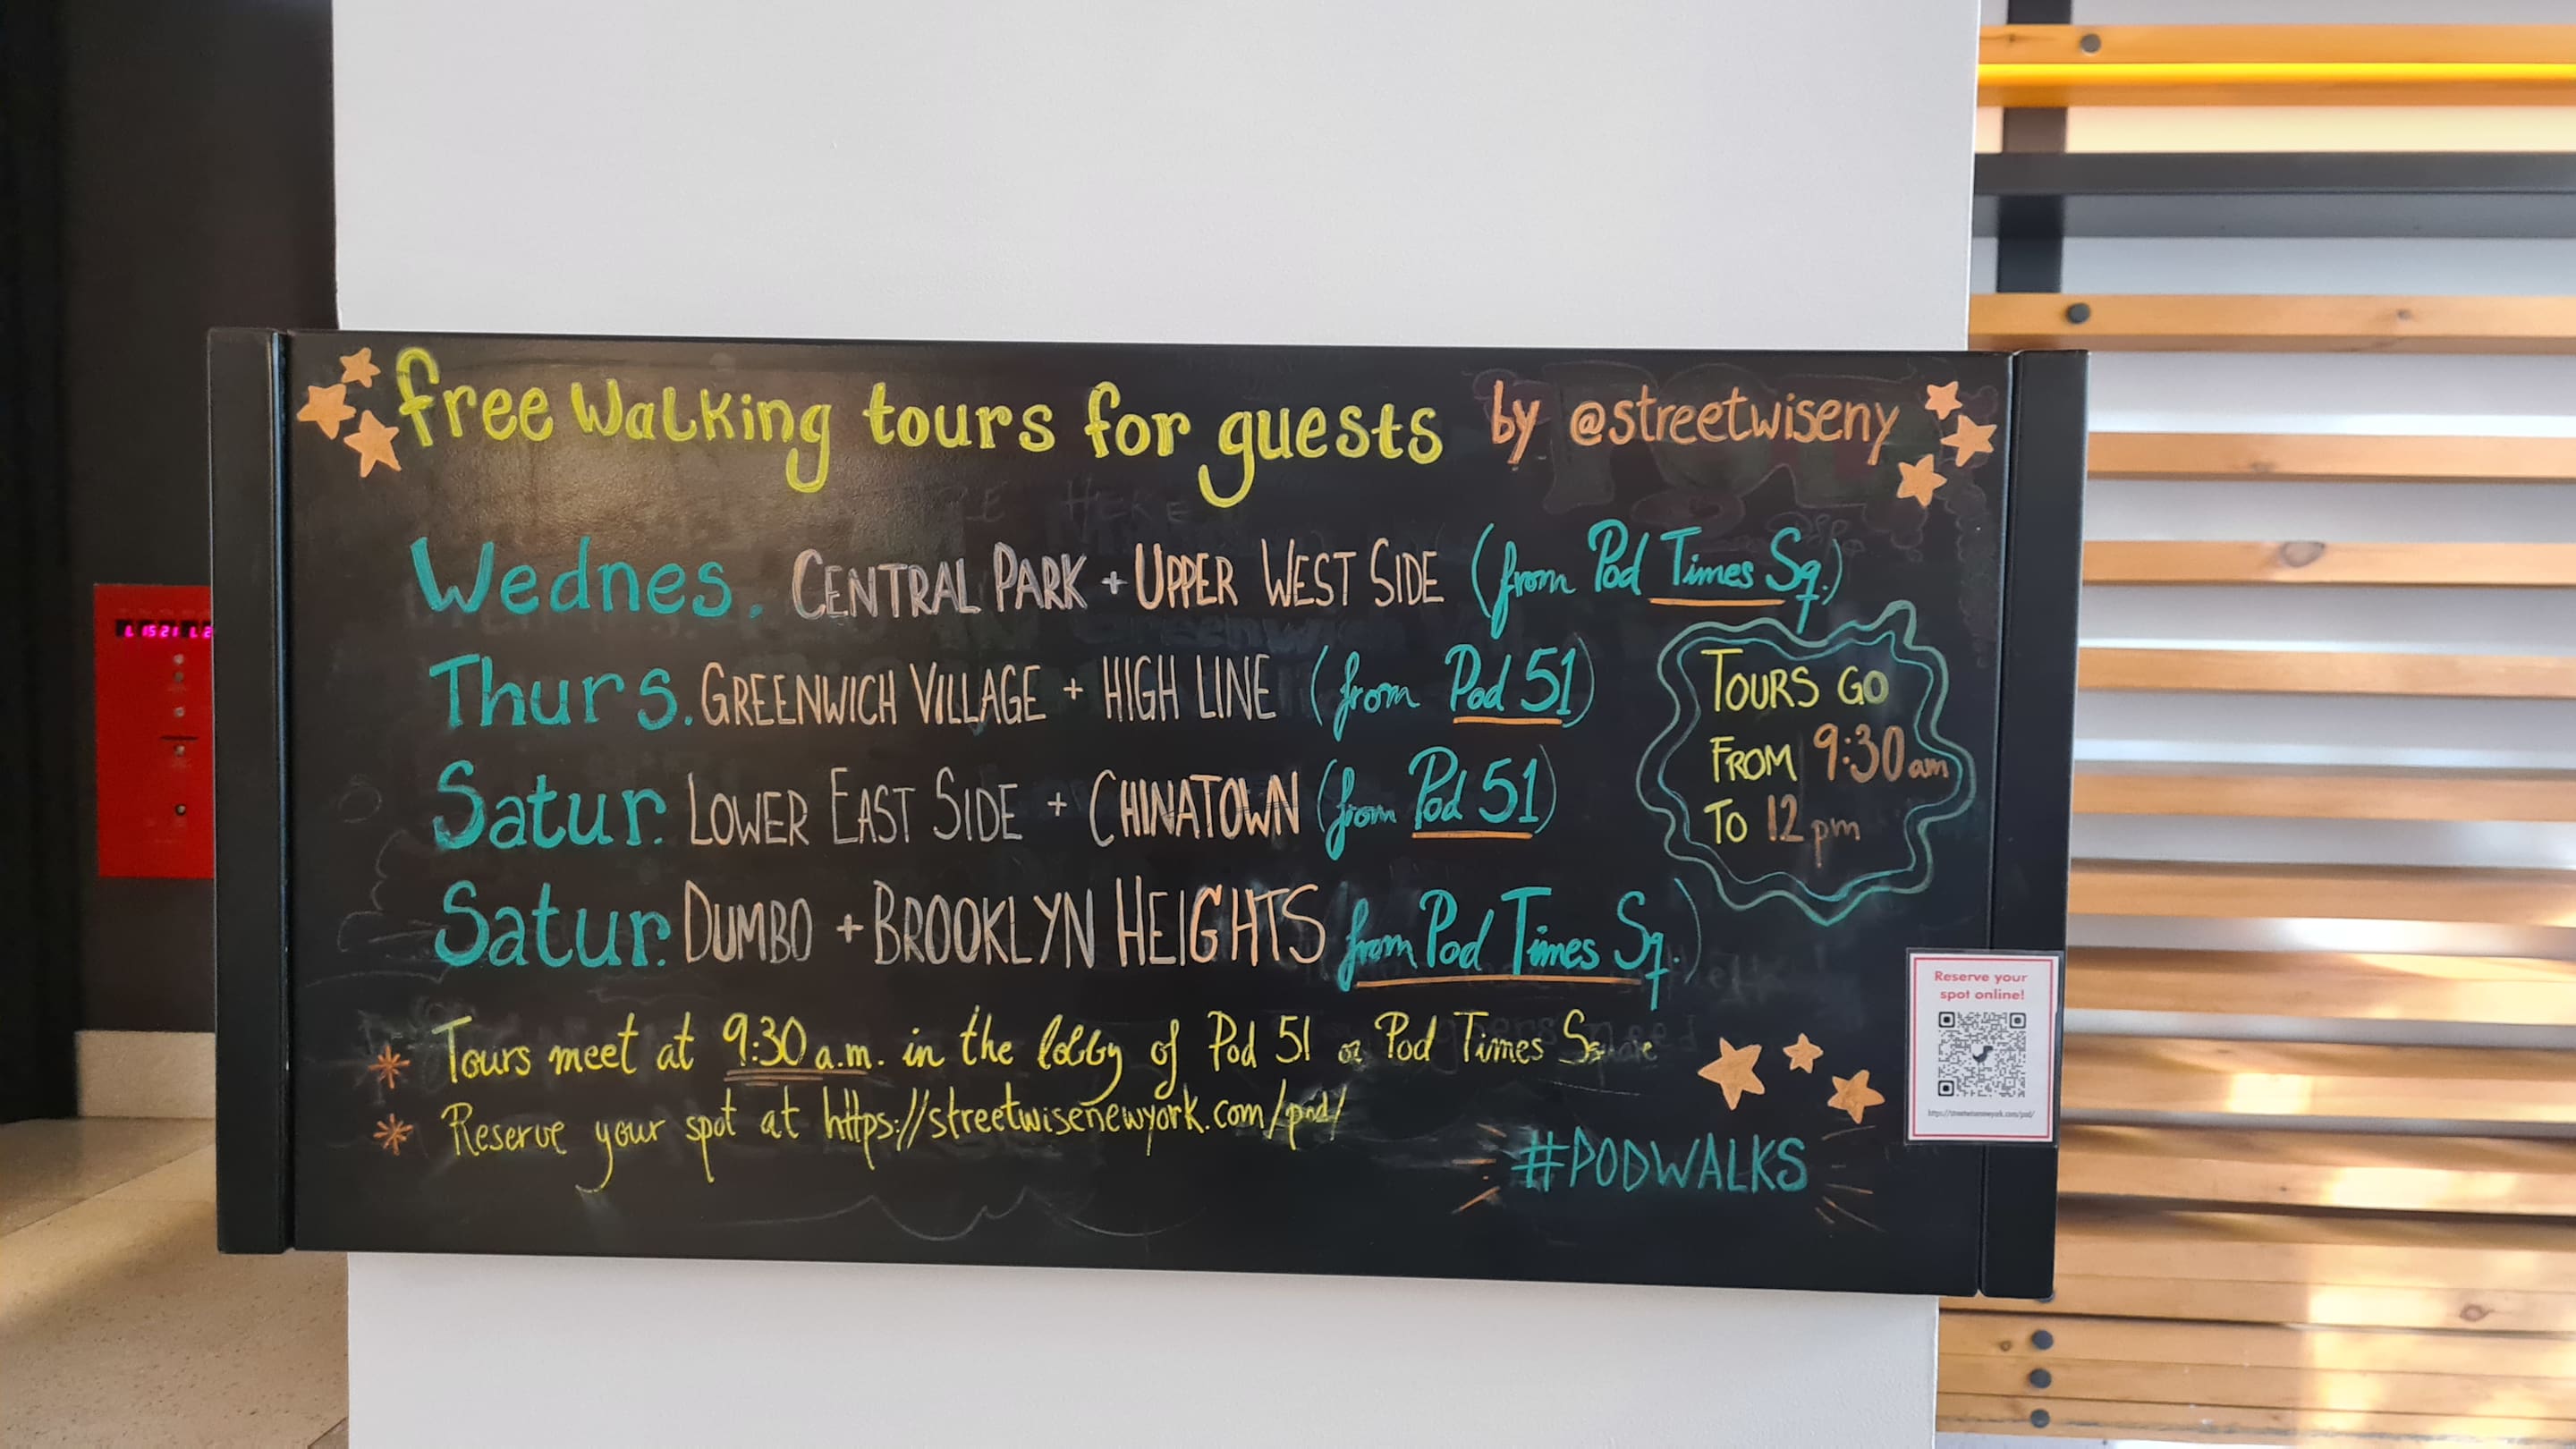 free Walking tours for guests by @streetwiseny
Wednes. CENTRAL PARK + UPPER WEST SIDE (from Pod Times Sq.)
Thurs. GREENWICH VILLAGE + HIGH LINE (from Pod 51)
Satur. LOWER EAST SIDE + CHINATOWN (from Pod 51)
Satur. DUMBO + BROOKLYN HEIGHTS from Pod Times Sq.)
TOURS GO
FROM 9:30 am
TO 12 pm
* Tours meet at 9:30 a.m. in the lobby of Pod 51 or Pod Times Square
* Reserve your spot at https://streetwisenewyork.com/pod/
#PODWALKS
Reserve your
spot online!
https://streetwisenewyork.com/pod/